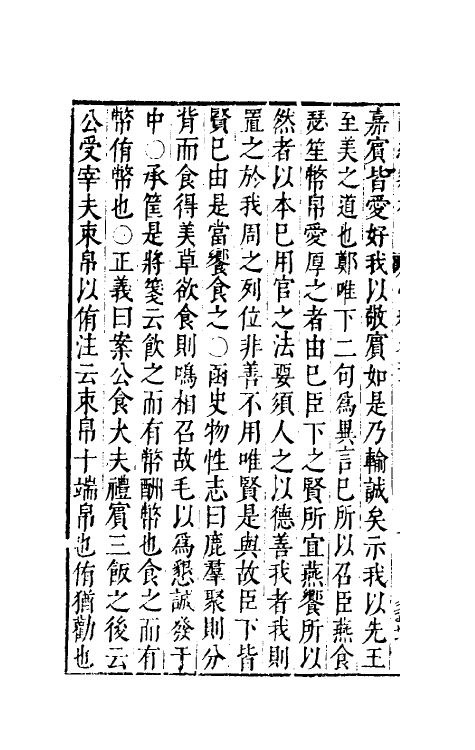 嘉賓皆愛好我以敬賓如是乃輸誠矣示我以先王
至美之道也鄭唯下二句爲異言已所以召臣燕食
瑟笙幣帛愛厚之者由已臣下之賢所宜燕饗所以
然者以本已用官之法要須人之以德善我者我則
置之於我周之列位非善不用唯賢是與故臣下皆
賢已由是當饗食之○函史物性志曰鹿羣聚則分
背而食得美草欲食則鳴相召故毛以爲懇誠發于
中○承筐是將箋云飲之而有幣酬幣也食之而有
幣侑幣也○正義曰案公食大夫禮賓三飯之後云
公受宰夫束帛以侑注云束帛十端帛也侑猶勸也